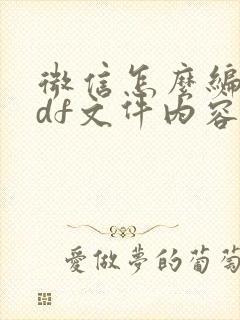 微信怎麼編
df文件內容
愛做夢的葡萄